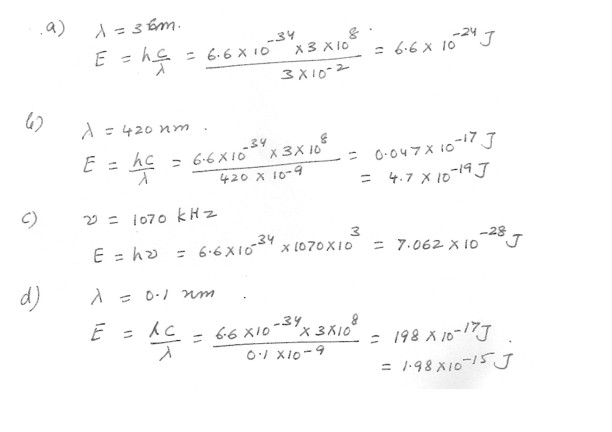 a) λ = 3 cm.
E = hc/λ = 6.6 x 10^-34 x 3 x 10^8 / 3 x 10^-2 = 6.6 x 10^-24 J
b) λ = 420 nm.
E = hc/λ = 6.6 x 10^-34 x 3 x 10^8 / 420 x 10^-9 = 0.047 x 10^-17 J
= 4.7 x 10^-19 J
c) ν = 1070 kHz
E = hν = 6.6 x 10^-34 x 1070 x 10^3 = 7.062 x 10^-28 J
d) λ = 0.1 nm.
E = hc/λ = 6.6 x 10^-34 x 3 x 10^8 / 0.1 x 10^-9 = 198 x 10^-17 J.
= 1.98 x 10^-15 J